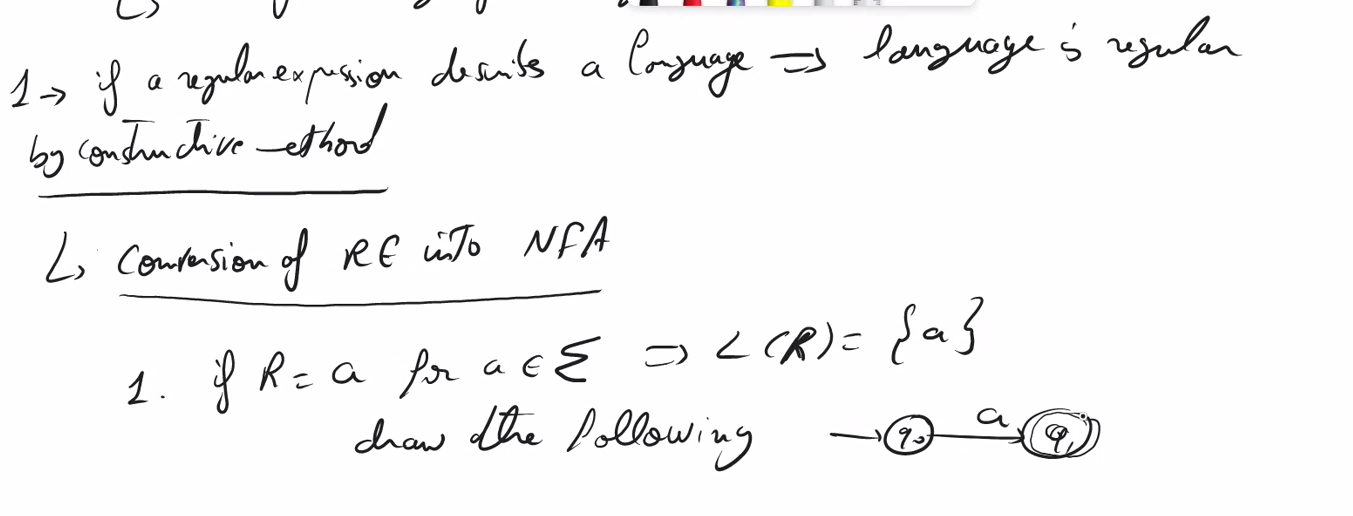 1 → if a regular expression describes a language ⇒ language is regular
by constructive method
↳ Conversion of RE into NFA
1. if R = a for a ∈ Σ ⇒ L(R) = {a}
draw the following → q₀ a q₁